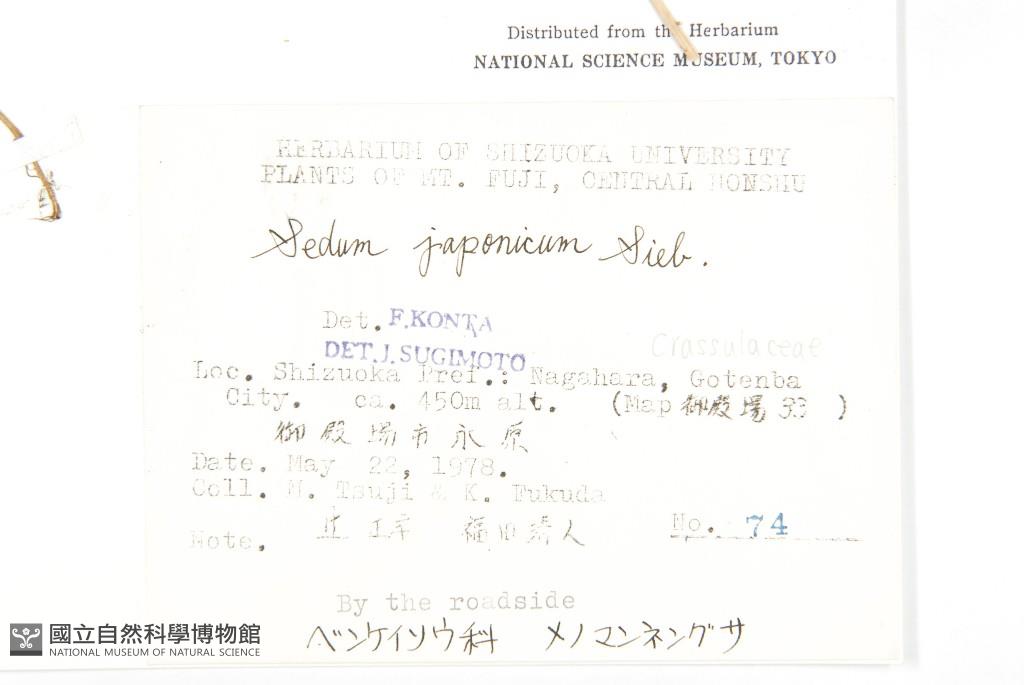 Distributed from the Herbarium
NATIONAL SCIENCE MUSEUM, TOKYO
HERBARIUM OF SHIZUOKA UNIVERSITY
PLANTS OF MT. FUJI, CENTRAL HONSHU
Sedum japonicum Sieb.
Det. F.KONTA
DET.J.SUGIMOTO
Crassulaceae
Loc. Shizuoka Pref.: Nagahara, Gotenba
City. ca. 450m alt. (Map 御殿場 33 )
御殿場市永原
Date. May 22, 1978.
Coll. M. Tsuji & K. Fukuda
福田 人
No. 74
Note.
By the roadside
ベンケイソウ科 メノマンネングサ
國立自然科學博物館
NATIONAL MUSEUM OF NATURAL SCIENCE